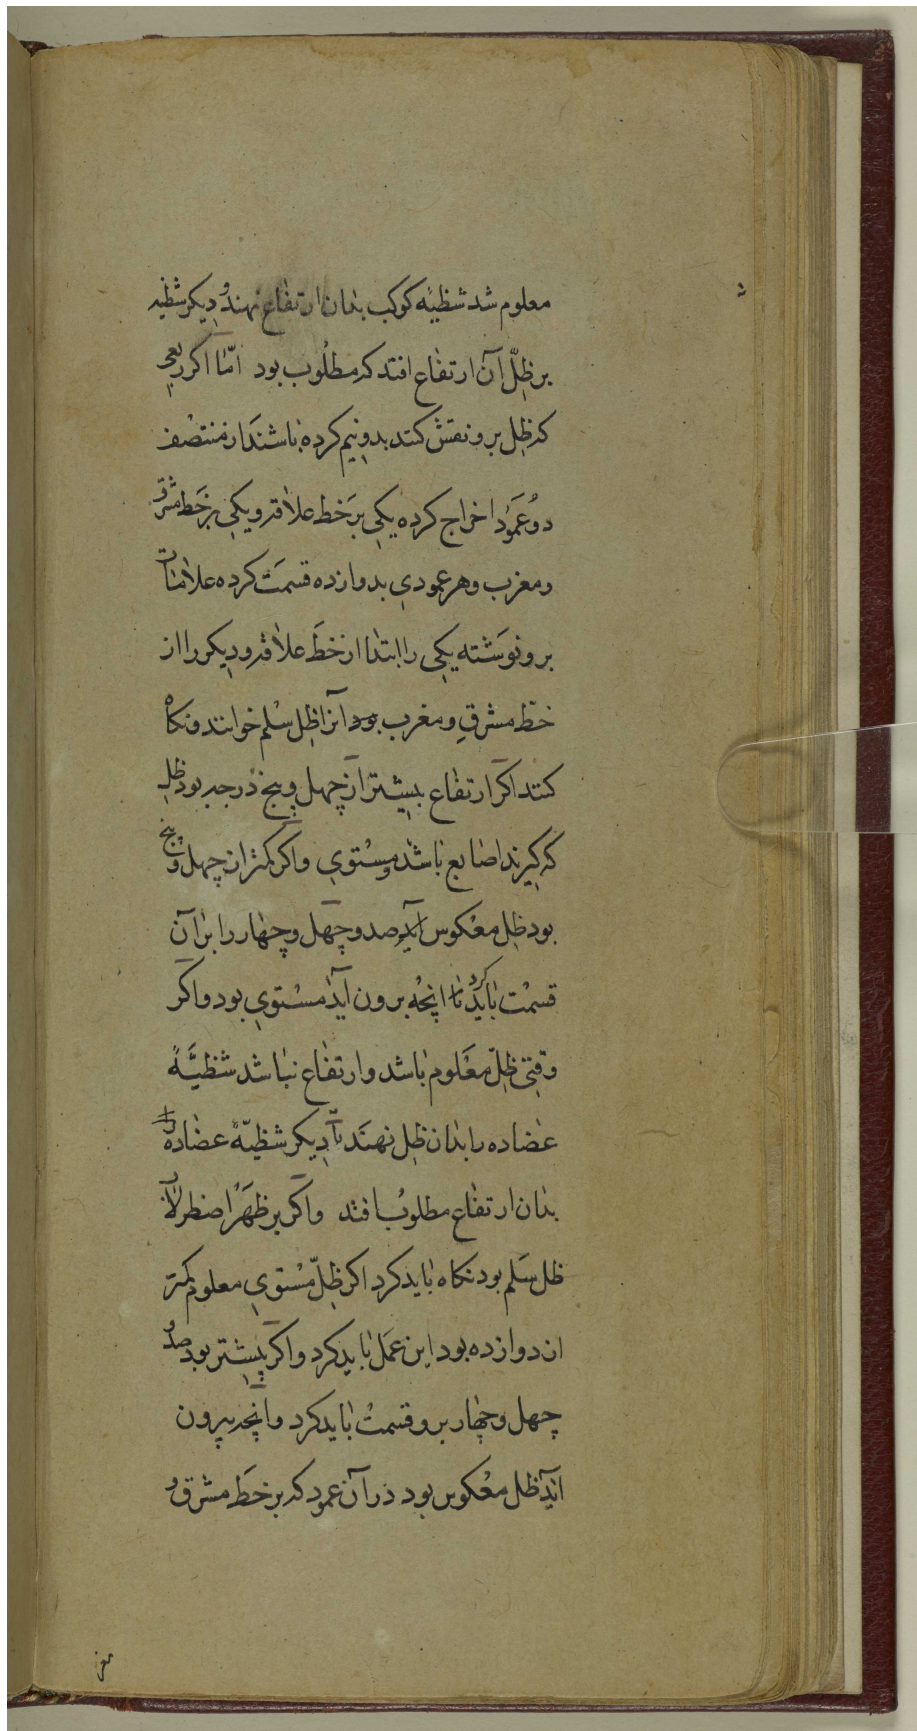 معلوم شد شظیهٔ کوکب بدان ارتفاع نهند و دیکر شظیه
بر ظلّ آن ارتفاع افتد که مطلوب بود امّا اکر ربعی
که ظل برو نقش کنند بدو نیم کرده باشند از منتصف
دو عمود اخراج کرده یکی بر خط علاقه و یکی بر خط مشرق
و مغرب و هر عمودی بدوازده قسمت کرده علامات
برو نوشته یکی را ابتدا از خط علاقه و دیکر را از
خطّ مشرق و مغرب بود آنرا ظل سلم خوانند و نکاه
کنند اکر ارتفاع بیشتر از چهل و پنج درجه بود ظل
که کیرند اصابع باشد و مستوی و اکر کمتر از چهل و پنج
بود ظل معکوس آید صد و چهل و چهار را بر آن
قسمت باید کرد تا انچه برون آید مستوی بود و اکر
وقتی ظلّ معلوم باشد و ارتفاع نباشد شظیّهٔ
عضاده را بدان ظل نهند تا دیکر شظیّهٔ عضاده
بدان ارتفاع مطلوب افتد و اکر بر ظهر اصطرلاب
ظل سلم بود نکاه باید کرد اکر ظلّ مستوی معلوم کمتر
از دوازده بود این عمل باید کرد و اکر بیشتر بود صد و
چهل و چهار برو قسمت باید کرد و آنچه بیرون
آید ظل معکوس بود در آن عمود که بر خط مشرق و
مغر